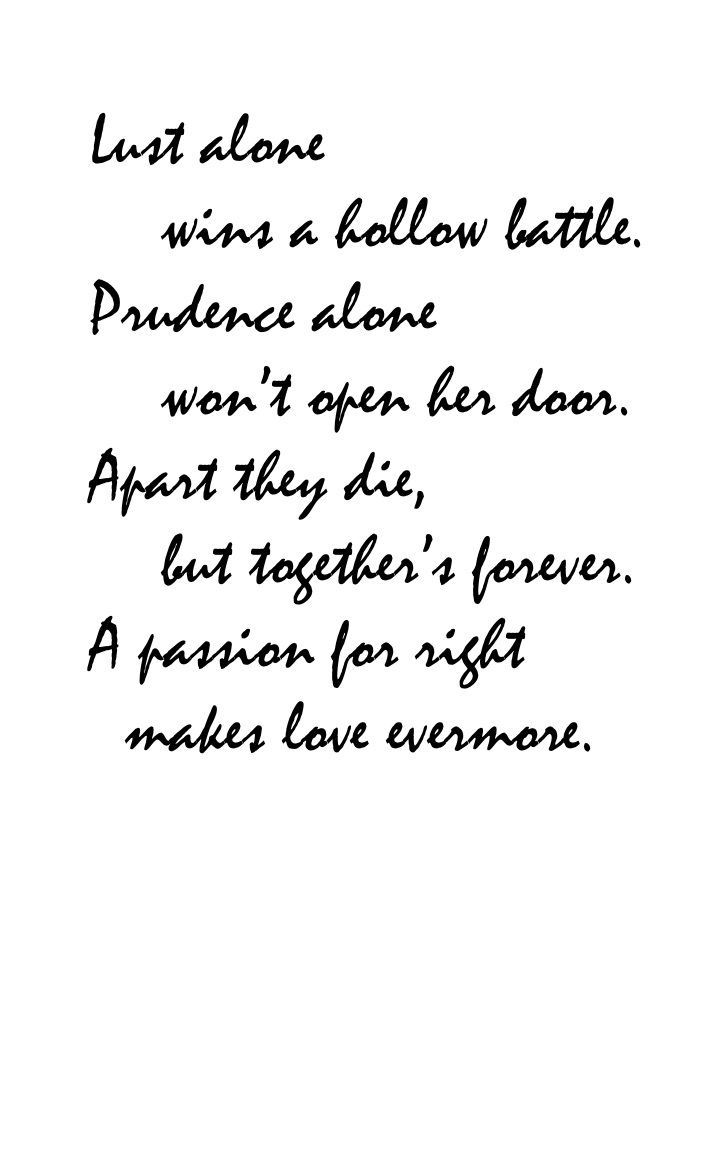 Lust alone
wins a hollow battle.
Prudence alone
won’t open her door.
Apart they die,
but together’s forever.
A passion for right
makes love evermore.